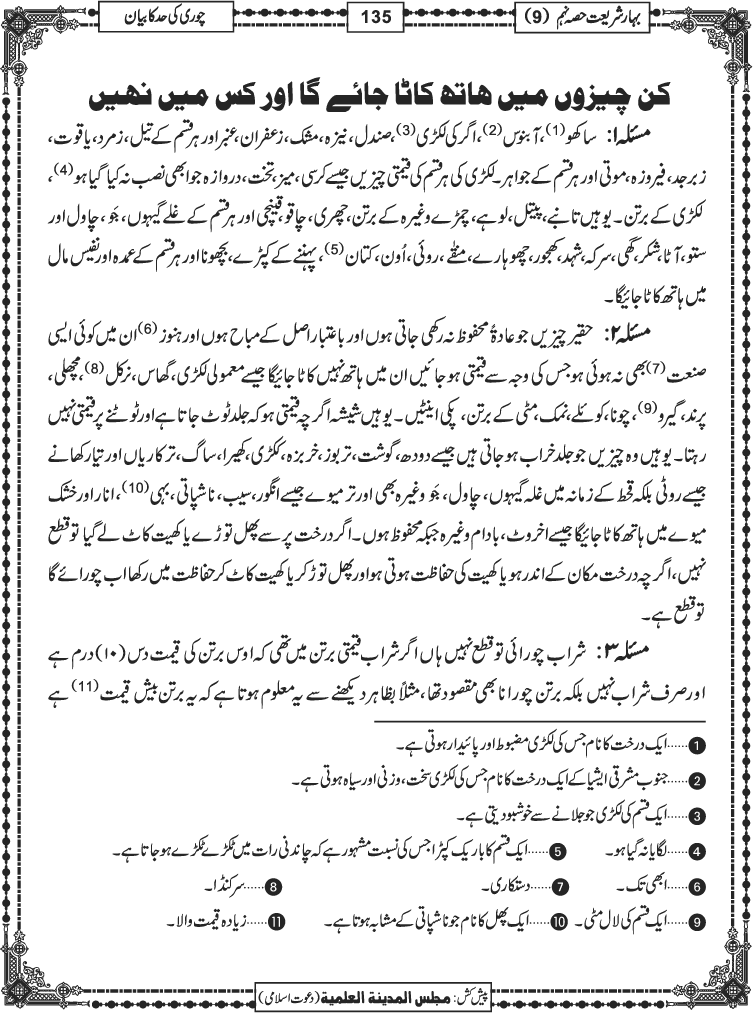 بہار شریعت حصہ نہم (9)
135
چوری کی حد کا بیان
کن چیزوں میں ھاتھ کاٹا جائے گا اور کس میں نھیں
مسئلہ ۱: ساکھو(1)، آبنوس(2)، اگر کی لکڑی(3)، صندل، نیزہ، مشک، زعفران، عنبر اور ہر قسم کے تیل، زمرد، یاقوت،
زبرجد، فیروزہ، موتی اور ہر قسم کے جواہر۔ لکڑی کی ہر قسم کی قیمتی چیزیں جیسے کرسی، میز، تخت، دروازہ جو ابھی نصب نہ کیا گیا ہو(4)،
لکڑی کے برتن۔ یوہیں تانبے، پیتل، لوہے، چمڑے وغیرہ کے برتن، چھری، چاقو، قینچی اور ہر قسم کے غلے گیہوں، جَو، چاول اور
ستو، آٹا، شکر، گھی، سرکہ، شہد، کھجور، چھوہارے، منقے، روئی، اُون، کتان(5)، پہننے کے کپڑے، بچھونا اور ہر قسم کے عمدہ اور نفیس مال
میں ہاتھ کاٹا جائیگا۔
مسئلہ ۲: حقیر چیزیں جو عادۃً محفوظ نہ رکھی جاتی ہوں اور باعتبار اصل کے مباح ہوں اور ہنوز(6) ان میں کوئی ایسی
صنعت(7) بھی نہ ہوئی ہو جس کی وجہ سے قیمتی ہو جائیں ان میں ہاتھ نہیں کاٹا جائیگا جیسے معمولی لکڑی، گھاس، نرکل(8)، مچھلی،
پرند، گیرو(9)، چونا، کوئلے، نمک، مٹی کے برتن، پکی اینٹیں۔ یوہیں شیشہ اگرچہ قیمتی ہو کہ جلد ٹوٹ جاتا ہے اور ٹوٹنے پر قیمتی نہیں
رہتا۔ یوہیں وہ چیزیں جو جلد خراب ہو جاتی ہیں جیسے دودھ، گوشت، تربوز، خربزہ، ککڑی، کھیرا، ساگ، ترکاریاں اور تیار کھانے
جیسے روٹی بلکہ قحط کے زمانہ میں غلہ گیہوں، چاول، جَو وغیرہ بھی اور تر میوے جیسے انگور، سیب، ناشپاتی، بہی(10)، انار اور خشک
میوے میں ہاتھ کاٹا جائیگا جیسے اخروٹ، بادام وغیرہ جبکہ محفوظ ہوں۔ اگر درخت پر سے پھل توڑے یا کھیت کاٹ لے گیا تو قطع
نہیں، اگرچہ درخت مکان کے اندر ہو یا کھیت کی حفاظت ہوتی ہو اور پھل توڑ کر یا کھیت کاٹ کر حفاظت میں رکھا اب چورائے گا
تو قطع ہے۔
مسئلہ ۳: شراب چورائی تو قطع نہیں ہاں اگر شراب قیمتی برتن میں تھی کہ اوس برتن کی قیمت دس (۱۰) درم ہے
اور صرف شراب نہیں بلکہ برتن چورانا بھی مقصود تھا، مثلاً بظاہر دیکھنے سے یہ معلوم ہوتا ہے کہ یہ برتن بیش قیمت(11) ہے
1 ……ایک درخت کا نام جس کی لکڑی مضبوط اور پائیدار ہوتی ہے۔
2 ……جنوب مشرقی ایشیا کے ایک درخت کا نام جس کی لکڑی سخت، وزنی اور سیاہ ہوتی ہے۔
3 ……ایک قسم کی لکڑی جو جلانے سے خوشبو دیتی ہے۔
4 ……لگایا نہ گیا ہو۔ 5 ……ایک قسم کا باریک کپڑا جس کی نسبت مشہور ہے کہ چاندنی رات میں ٹکڑے ٹکڑے ہو جاتا ہے۔
6 ……ابھی تک۔ 7 ……دستکاری۔ 8 ……سرکنڈا۔
9 ……ایک قسم کی لال مٹی۔ 10 ……ایک پھل کا نام جو ناشپاتی کے مشابہ ہوتا ہے۔ 11 ……زیادہ قیمت والا۔
پیش کش: مجلس المدینۃ العلمیۃ (دعوت اسلامی)